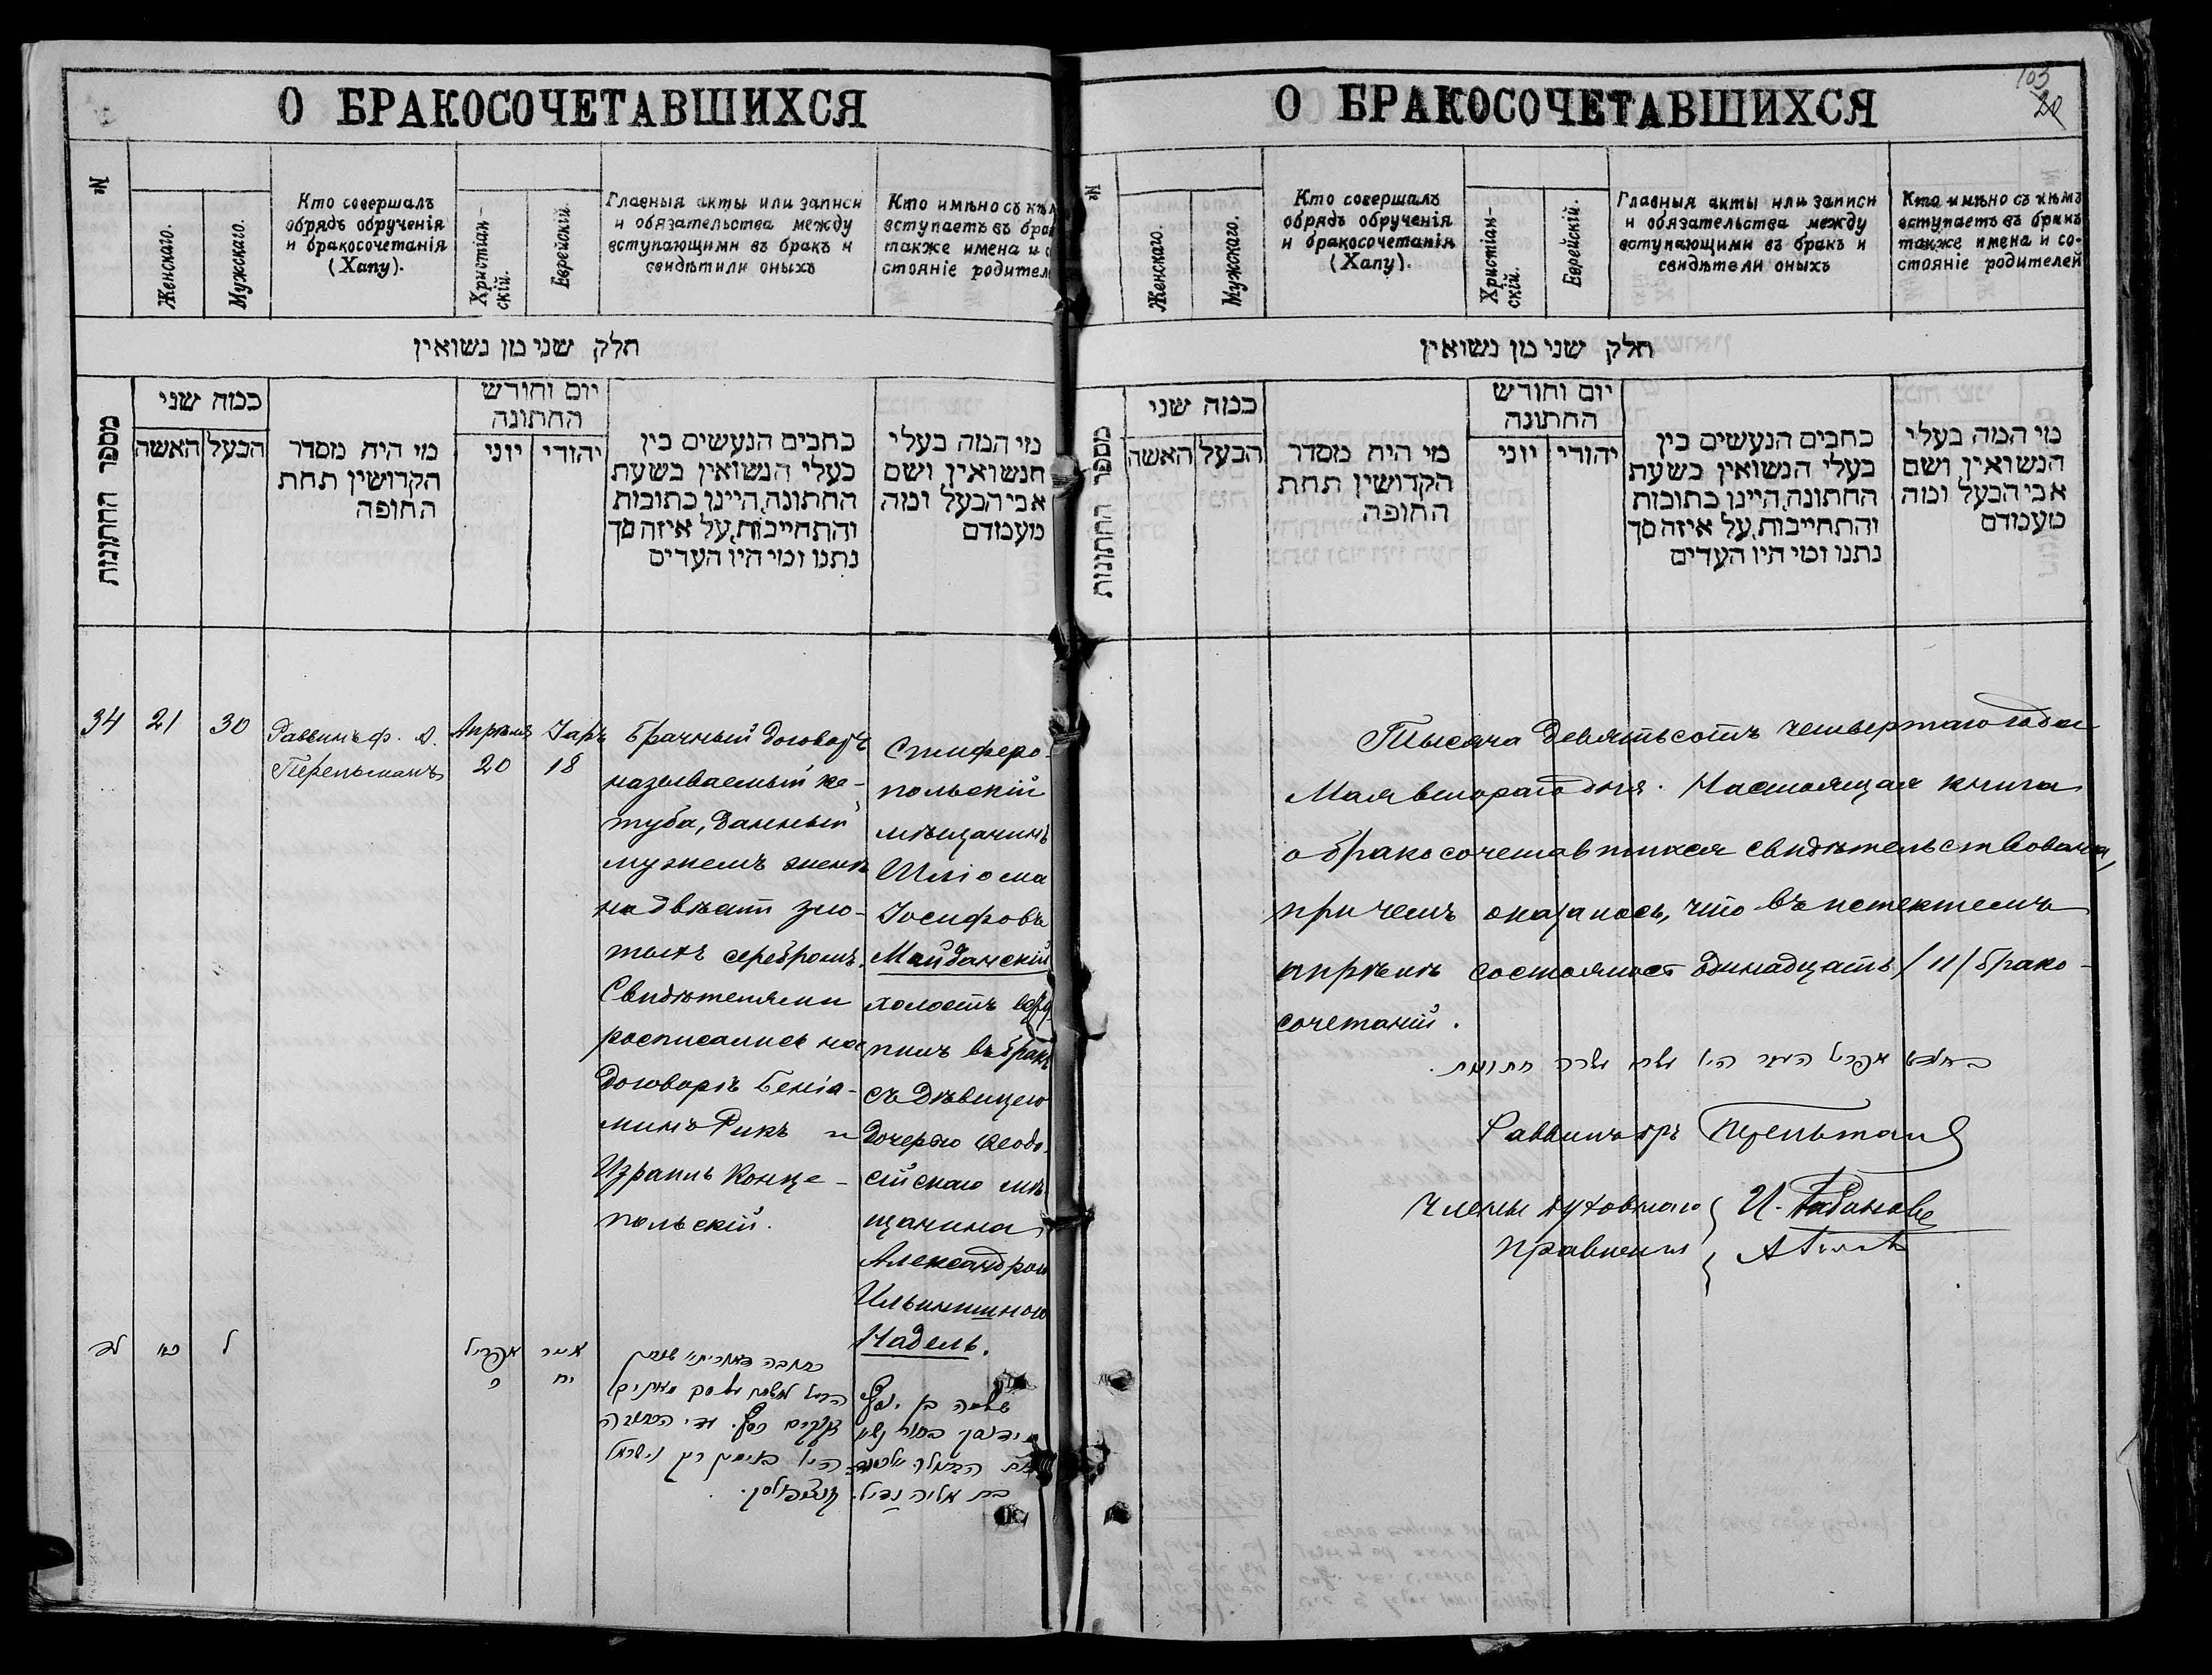 О БРАКОСОЧЕТАВШИХСЯ
№
Женскаго.
Мужскаго.
Кто совершалъ
обрядъ обрученія
и бракосочетанія
(Хапу).
Христіан–
скій.
Еврейскій.
Главныя акты или записи
и обязательства между
вступающими въ бракъ и
свидѣтили оныхъ
Кто имѣно съ кѣм
вступаетъ въ бра
также имена и с
стояніе родител
חלק שני מן נשואין
מספר החתונות
כמה שני
האשה
הבעל
מי היה מסדר
הקדושין תחת
החופה
יום וחודש
החתונה
יוני
יהודי
כתבים הנעשים בין
בעלי הנשואין בשעת
החתונה, היינו כתובות
והתחייבות, על איזה סך
נתנו ומי היו העדים
מי המה בעלי
הנשואין ושם
אבי הבעל ומה
מעמדם
34
21
30
Раввинъ ф. А.
Перельманъ
Апрѣля
20
Іаръ
18
Брачный договоръ
называемый ке-
туба, данный
мужемъ женѣ
на двѣсти зло-
тыхъ серебромъ.
Свидѣтелями
росписались на
договорѣ Беніа-
минъ Рикъ и
Израиль Конце-
польскій.
Симферо-
польскій
мѣщанинъ
Шліома
Іосифовъ
Майданскій
холостъ
въ бракъ
съ дѣвицею
дочерью Ѳеодо-
сійскаго мѣ-
щанина
Александрою
Ильинишною
Надель.
לד
כא
ל
אפריל
כ
אייר
יח
הבעל לאשתו על סך מאתים
זקוקים כסף. עדי הכתובה
היו בנימין ריק וישראל
קונצפולסקי.
שלמה בן יוסף
בת אליה נדיל.
О БРАКОСОЧЕТАВШИХСЯ
103
20
№
Женскаго.
Мужскаго.
Кто совершалъ
обрядъ обрученія
и бракосочетанія
(Хапу).
Христіан–
скій.
Еврейскій.
Главныя акты или записи
и обязательства между
вступающими въ бракъ и
свидѣтели оныхъ
Кто имѣно съ кѣмъ
вступаетъ въ бракъ
также имена и со-
стояніе родителей
חלק שני מן נשואין
מספר החתונות
כמה שני
האשה
הבעל
מי היה מסדר
הקדושין תחת
החופה
יום וחודש
החתונה
יוני
יהודי
כתבים הנעשים בין
בעלי הנשואין בשעת
החתונה, היינו כתובות
והתחייבות, על איזה סך
נתנו ומי היו העדים
מי המה בעלי
הנשואין ושם
אבי הבעל ומה
מעמדם
Тысяча девятьсотъ четвертаго года
Мая втораго дня. Настоящая книга
о бракосочетавшихся свидѣтельствована,
при чемъ оказалось, что въ истекшемъ
апрѣлѣ состоялось одинадцать /11/ брако-
сочетаній.
בחדש אפריל העבר היו עשרה חתונות.
Раввинъ Перельманъ
Члены духовнаго
правленія